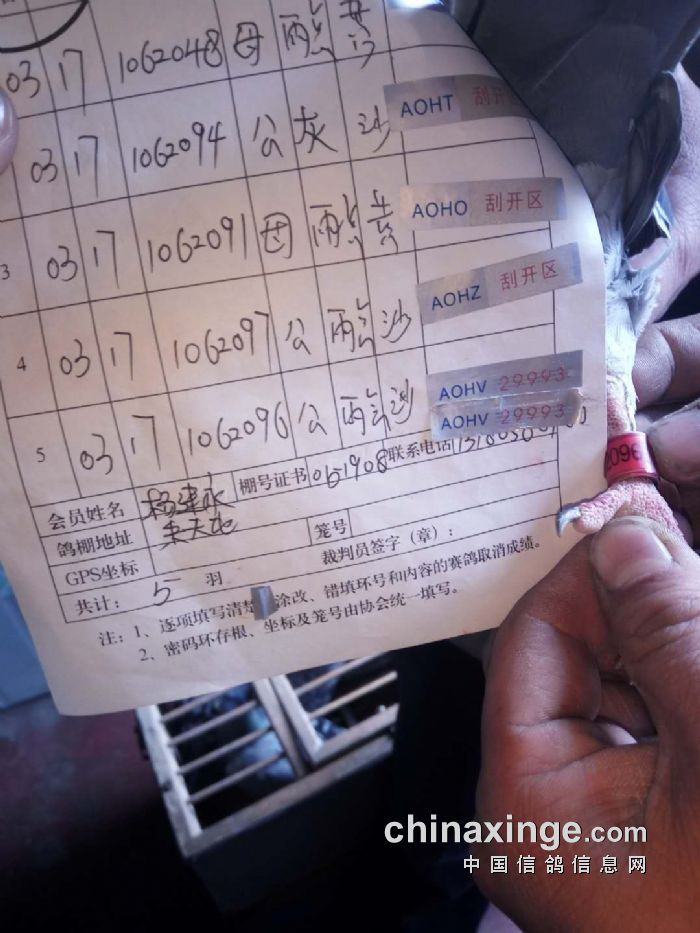 03 17 1062048 母 雨点 黄
03 17 1062094 公 灰 沙 AOHT 刮开区
3 03 17 1062091 母 雨点 黄 AOHO 刮开区
4 03 17 1062097 公 雨点 沙 AOHZ 刮开区
5 03 17 1062096 公 雨点 沙 AOHV 29993
AOHV 29993
会员姓名 杨建永 棚号证书 0151908 联系电话
鸽棚地址
GPS坐标 笼号
共计: 5 羽 裁判员签字(章):
注:1、逐项填写清楚 涂改、错填环号和内容的赛鸽取消成绩。
2、密码环存根、坐标及笼号由协会统一填写。
2096
chinaxinge.com
中国信鸽信息网